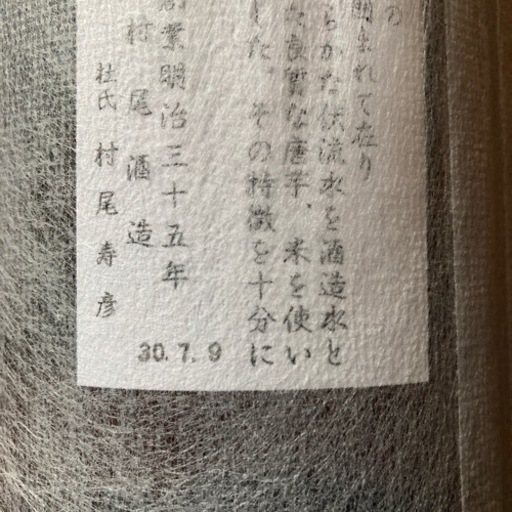 の
囲まれて在り
らかな伏流水を酒造水と
な良質な唐芋、米を使い
した。その特徴を十分に
創業明治三十五年
村尾酒造
杜氏 村尾寿彦
30.7.9